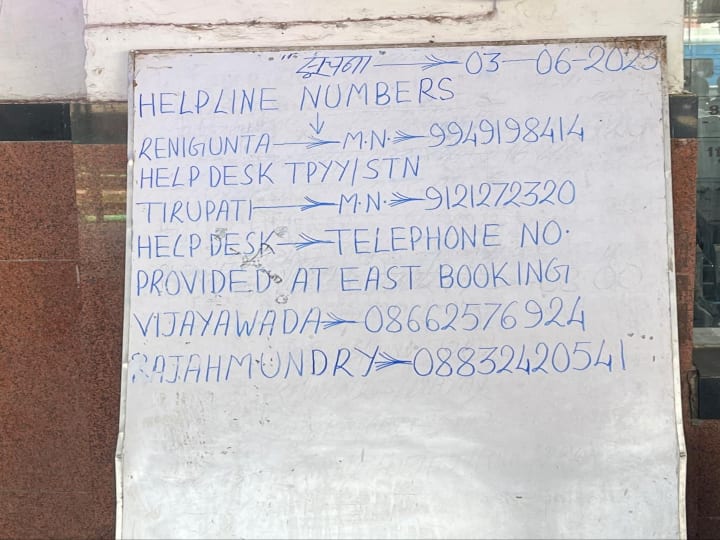 सूचना → 03-06-2023
HELPLINE NUMBERS
↓
RENIGUNTA → M.N. → 9949198414
HELP DESK TPYY/STN
TIRUPATI → M.N. → 9121272320
HELP DESK → TELEPHONE NO.
PROVIDED AT EAST BOOKING
VIJAYAWADA → 08662576924
RAJAHMUNDRY → 08832420541